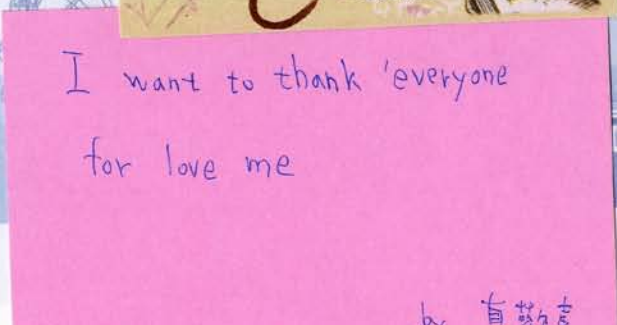 I want to thank 'everyone
for love me
by